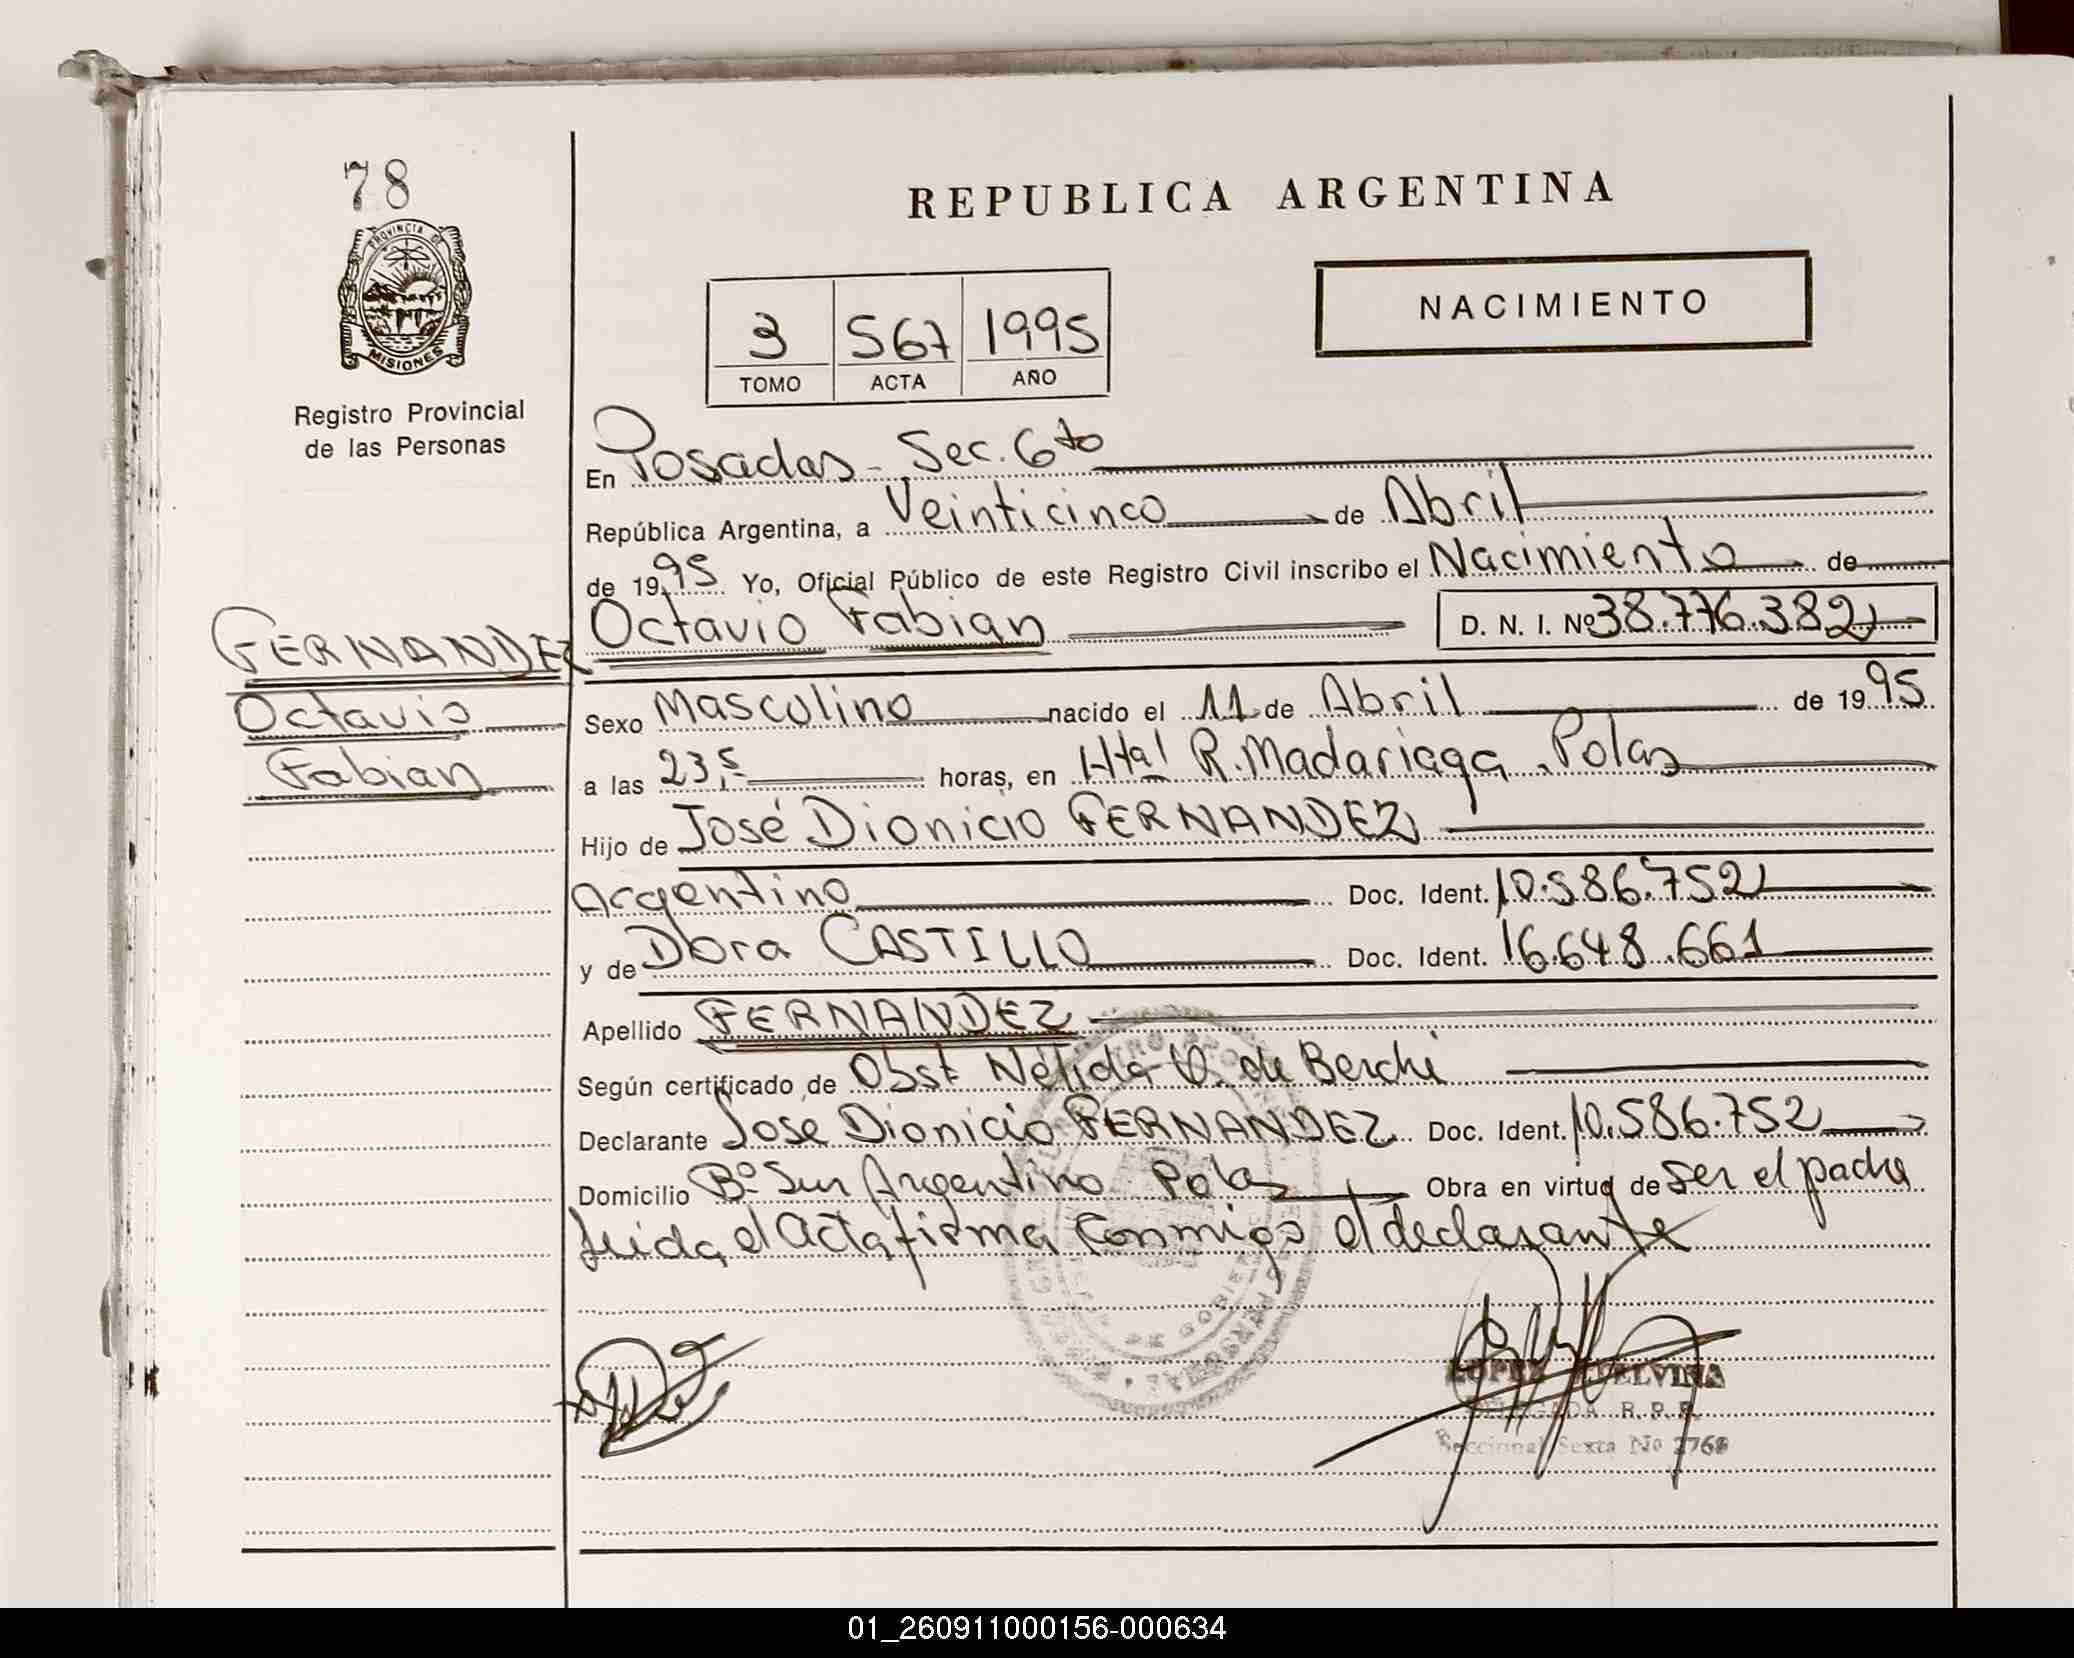 78
PROVINCIA DE
MISIONES
Registro Provincial
de las Personas
REPUBLICA ARGENTINA
NACIMIENTO
3 567 1995
TOMO ACTA AÑO
En Posadas - Sec. 6to
República Argentina, a Veinticinco de Abril
de 1995 Yo, Oficial Público de este Registro Civil inscribo el Nacimiento de
Octavio Fabian D. N. I. Nº 38.776.382
FERNANDEZ
Octavio
Fabian
Sexo Mascolino nacido el 11 de Abril de 1995
a las 23,5 horas, en Htal R. Madariaga. Pdas
Hijo de José Dionicio FERNANDEZ
Argentino Doc. Ident. 10.586.752
y de Dora CASTILLO Doc. Ident. 16.648.661
Apellido FERNANDEZ
Según certificado de Obst Nelida V. de Berchi
Declarante Jose Dionicio FERNANDEZ Doc. Ident. 10.586.752
Domicilio Bº Sur Argentino Pdas Obra en virtud de ser el padre
Leida el Acta firma conmigo el declarante
LOPEZ ETELVINA
DELEGADA R.P.P.
Seccional Sexta No 2768
01_260911000156-000634